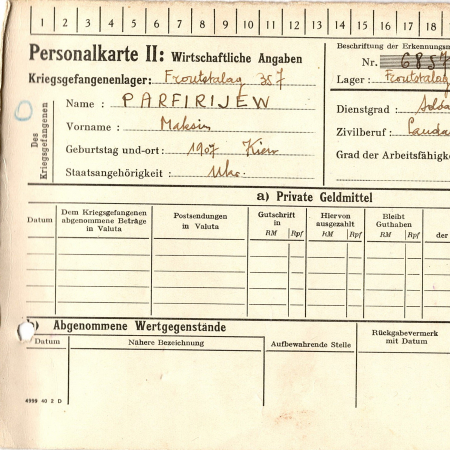 1 2 3 4 5 6 7 8 9 10 11 12 13 14 15 16 17 18
Personalkarte II: Wirtschaftliche Angaben
Beschriftung der Erkennungsm
Nr. 6857
Kriegsgefangenenlager: Frontstalag 357
Lager: Frontstalag
Des Kriegsgefangenen
Name: PARFIRIJEW
Dienstgrad: Solda
Vorname: Maksim
Zivilberuf:
Geburtstag und -ort: 1907 Kiew
Grad der Arbeitsfähigke
Staatsangehörigkeit: Ukr.
a) Private Geldmittel
Datum
Dem Kriegsgefangenen abgenommene Beträge in Valuta
Postsendungen in Valuta
Gutschrift in
RM Rpf
Hiervon ausgezahlt
RM Rpf
Bleibt Guthaben
RM Rpf
der
b) Abgenommene Wertgegenstände
Datum
Nähere Bezeichnung
Aufbewahrende Stelle
Rückgabevermerk mit Datum
4999 40 2 D